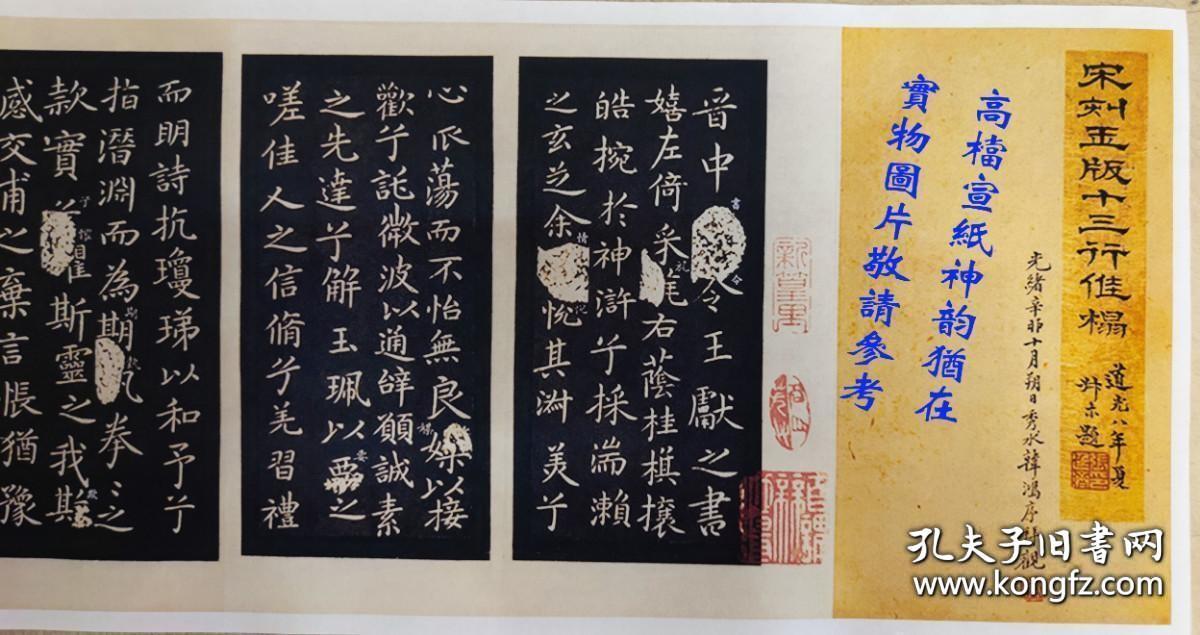 宋刻玉版十三行佳榻
道光八年夏
叔未題
光緒辛卯十月朔日秀水韓鴻序拜觀
高檔宣紙神韵猶在
實物圖片敬請參考
晋中書令王獻之書
嬉左倚采旄右蔭桂棋攘
皓捥於神滸兮採湍瀬
之玄芝余情悦其淑美兮
心震蕩而不怡無良媒以接
歡兮託微波以通辭願誠素
之先達兮解玉珮以要之
嗟佳人之信脩兮羌習禮
而明詩抗瓊珶以和予兮
指潛淵而為期執拳之
款實兮懼斯靈之我欺
感交甫之棄言悵猶豫
孔夫子旧書网
www.kongfz.com